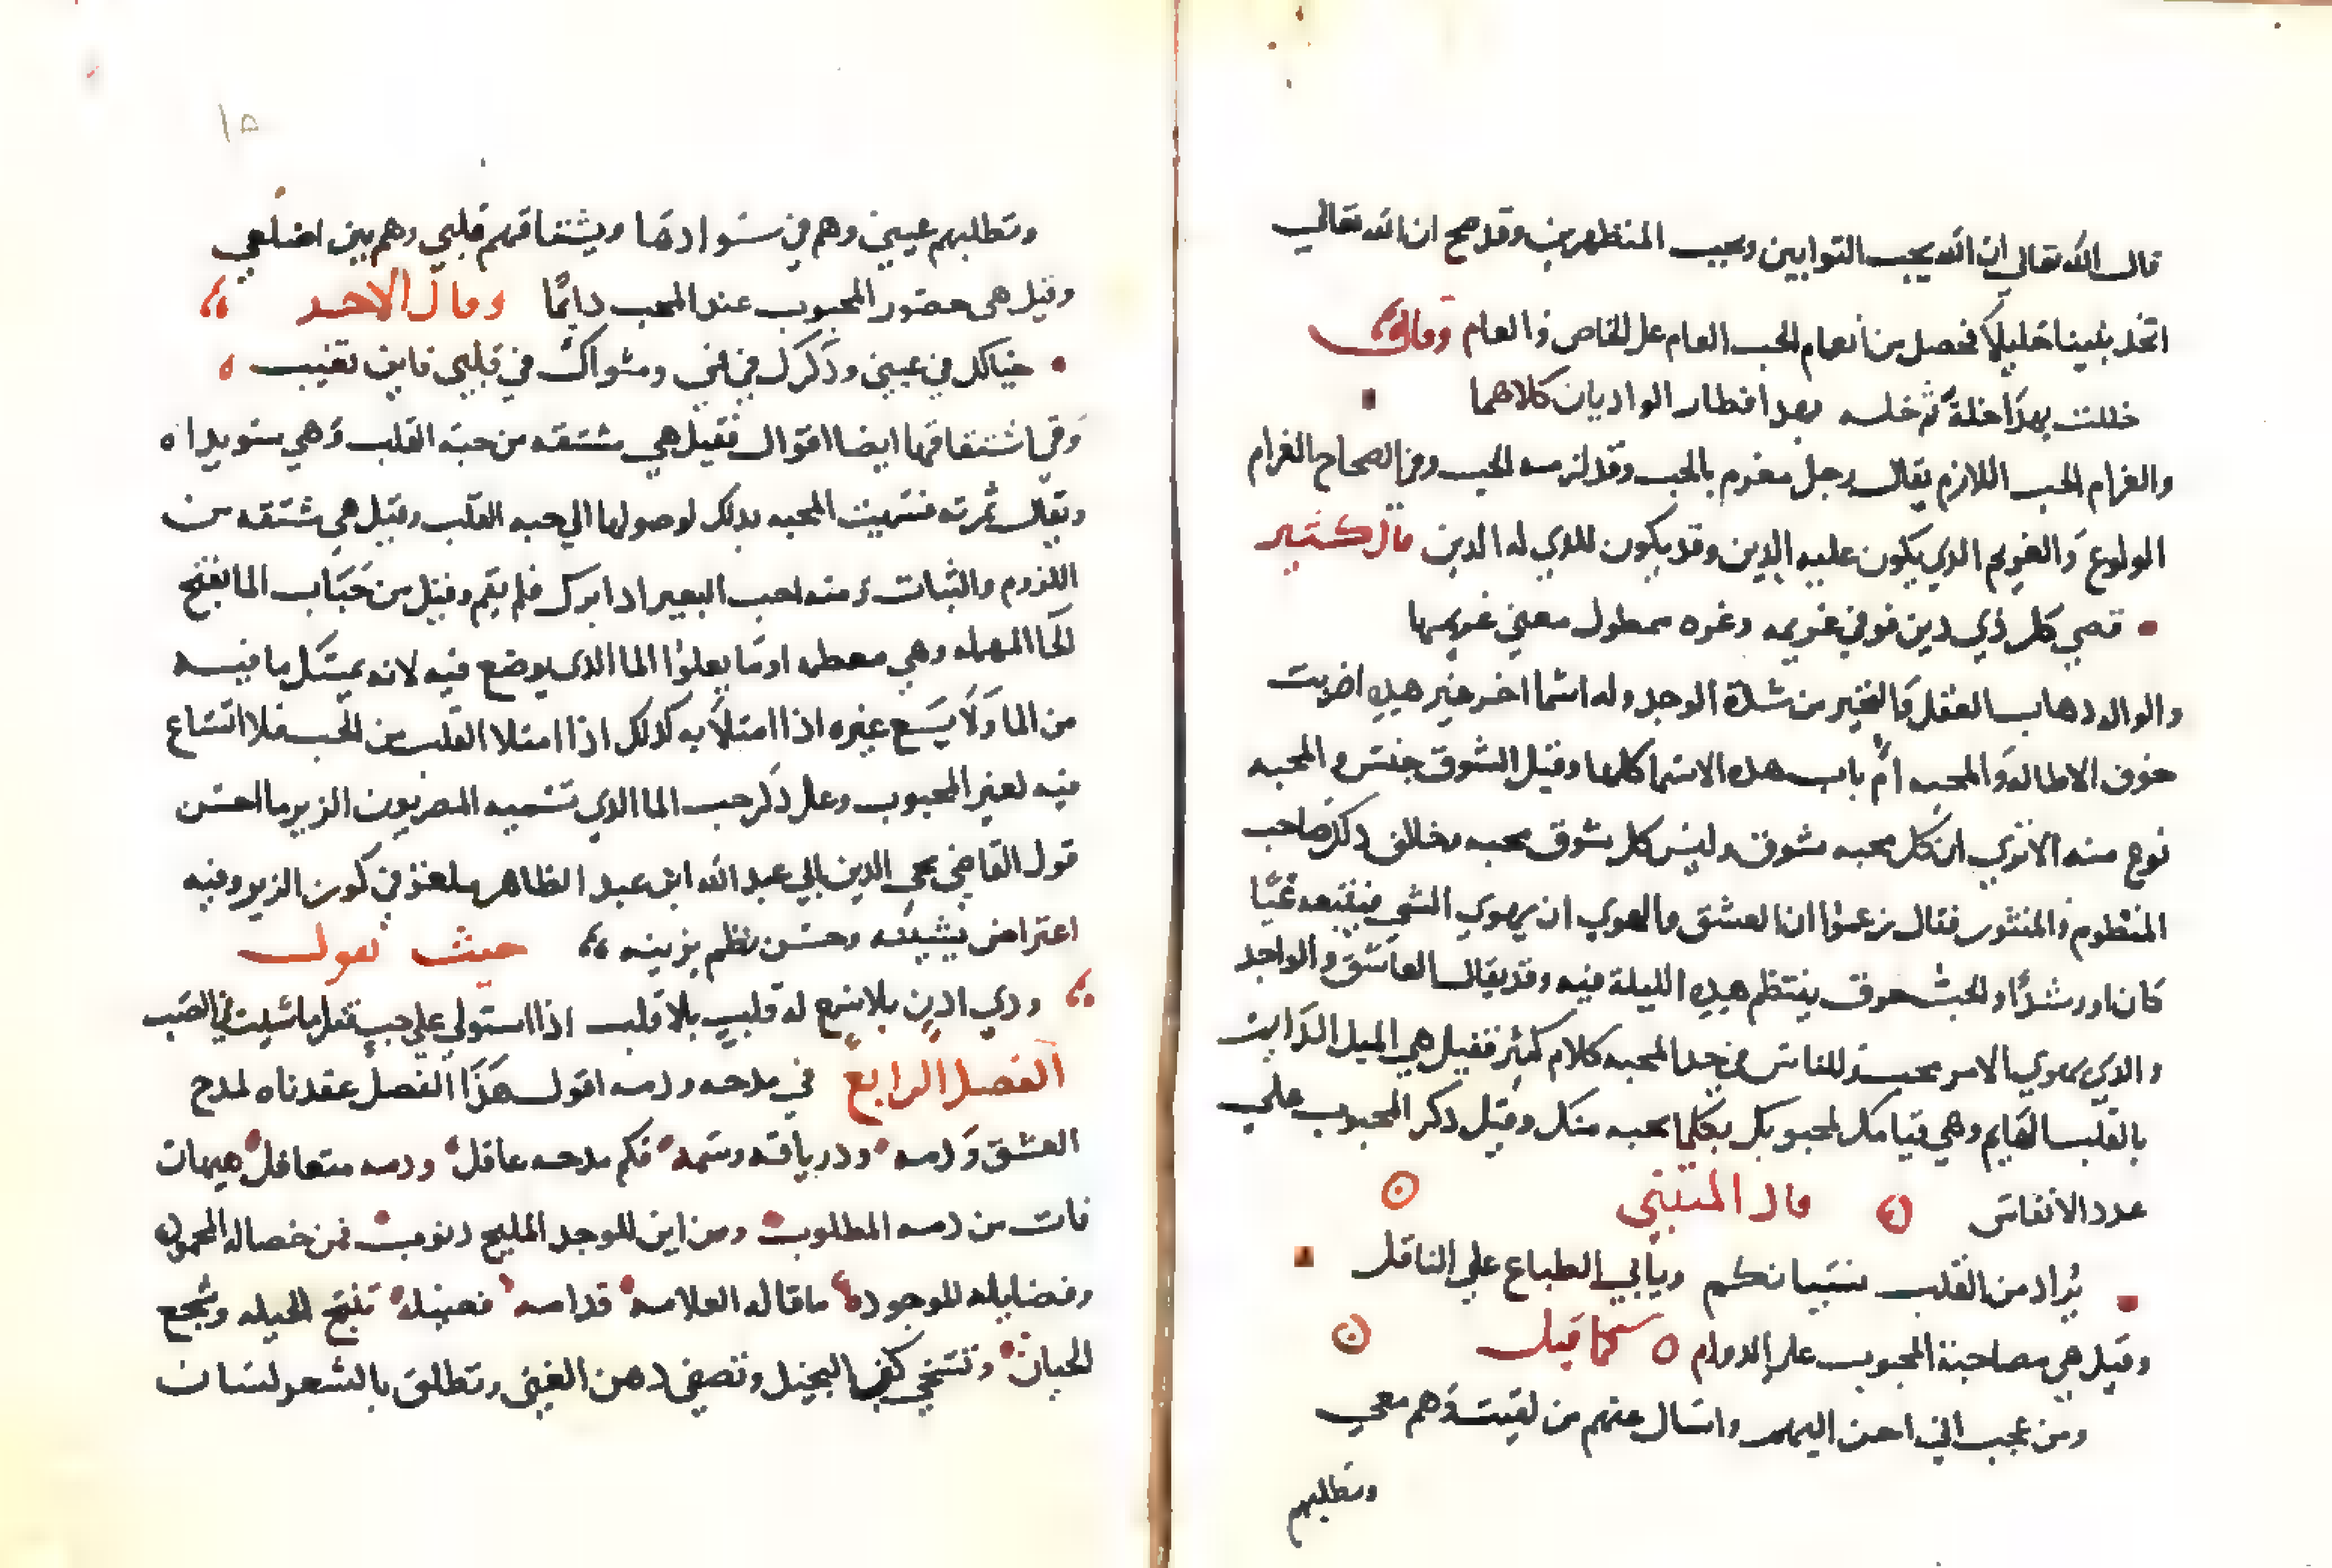 قال الله تعالى ان الله يحب التوابين ويحب المتطهرين وقد صح ان الله تعالي
اتخذ نبينا خليلا فحصل من انعام الحب العام على الخاص والعام وقال
خللت بهذا خلة ثم خله بعد اقطار الواديان كلاهما
والغرام الحب اللازم يقال رجل مغرم بالحب وقد لزمه الحب وفي الصحاح الغرام
الولوع والغريم الذي يكون عليه الدين وقد يكون للذي له الدين قال كثير
قضي كل ذي دين فوفي غريمه وعزه ممطول معني غريمها
والوله ذهاب العقل والتحير من شدة الوجد وله اسما اخر غير هذه اضربت
خوف الاطاله والمحبه ام باب هذه الاسما كلها وقيل الشوق جنس والمحبه
نوع منه الا تري ان كل محبه شوق وليس كل شوق محبه وخالف ذلك صاحب
المنظوم والمنثور فقال زعموا ان العشق والهوي ان يهوي الشي فيتبعه غيا
كان او رشدا والحب حرف ينتظم هذه الثلاثة فيه وقد يقال العاشق والواجد
والذي يهوي الامر محب وللناس في حد المحبه كلام كثير فقيل هي الميل الدايم
بالقلب الهايم وهي قيامك لمحبوبك بكلما يحبه منك وقيل ذكر المحبوب علي
عدد الانفاس قال المتنبي
يراد من القلب نسيانكم ويأبي الطباع علي الناقل
وقيل هي مصاحبة المحبوب على الدوام كما قيل
ومن عجب اني احن اليهم واسال عنهم من لقيت وهم معي
وتطلبهم
١٥
وتطلبهم عيني وهم في سوادها ويشتاقهم قلبي وهم بين اضلعي
وقيل هي حضور المحبوب عند المحب دايما وقال الاخر
خيالك في عيني وذكرك في فمي ومثواك في قلبي فاين تغيب
وفي اشتقاقها ايضا اقوال فقيل هي مشتقه من حبة القلب وهي سويداه
ويقال ثمرته فسميت المحبه بذلك لوصولها الي حبه القلب وقيل هي مشتقه من
اللزوم والثبات ومنه احب البعير اذا برك فلم يقم وقيل من حباب الما بفتح
الحا المهمله وهي معظمه او ما يعلوا الما الذي يوضع فيه لانه يمسك ما فيه
من الما ولا يسع غيره اذا امتلا به كذلك اذا امتلا القلب من الحب فلا اتساع
فيه لغير المحبوب وعلى ذكر حب الما الذي تسميه المصريون الزير ما احسن
قول القاضي محي الدين ابي عبد الله ابن عبد الظاهر ملغز في كوز الزير وفيه
اعتراض يشينه وحسن نظم يزينه حيث يقول
وذي اذن بلا سمع له قلب بلا قلب اذا استولي علي حب فقل ما شيت في الصب
الفصل الرابع في مدحه وذمه اقول هذا الفصل عقدناه لمدح
العشق وذمه ودرياقه وسمه فكم مدحه عاقل وذمه متعاقل هيهات
فات من ذمه المطلوب ومن اين للوجه المليح ذنوب فمن خصاله المحموده
وفضايله الموجوده ما قاله العلامه قدامه فضيله تنتج الحيله وتشجع
الجبان وتسخي كف البخيل وتصفي ذهن الغبي وتطلق بالشعر لسان